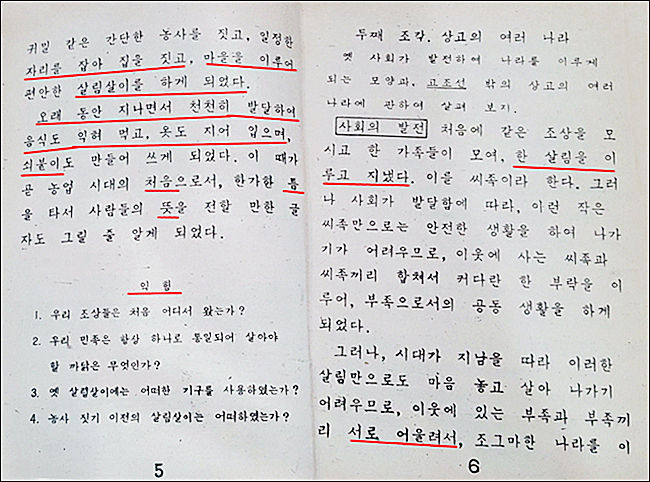 귀밀 같은 간단한 농사를 짓고, 일정한
자리를 잡아 집을 짓고, 마을을 이루어
편안한 살림살이를 하게 되었다.
오래 동안 지나면서 천천히 발달하여
음식도 익혀 먹고, 옷도 지어 입으며,
쇠붙이도 만들어 쓰게 되었다. 이 때가
곧 농업 시대의 처음으로서, 한가한 틈
을 타서 사람들의 뜻을 전할 만한 글
자도 그릴 줄 알게 되었다.
익 힘
1. 우리 조상들은 처음 어디서 왔는가?
2. 우리 민족은 항상 하나로 통일되어 살아야
할 까닭은 무엇인가?
3. 옛 살림살이에는 어떠한 기구를 사용하였는가?
4. 농사 짓기 이전의 살림살이는 어떠하였는가?
5
두째 조각. 상고의 여러 나라
옛 사회가 발전하여 나라를 이루게
되는 모양과, 고조선 밖의 상고의 여러
나라에 관하여 살펴 보자.
사회의 발전 처음에 같은 조상을 모
시고 한 가족들이 모여, 한 살림을 이
루고 지냈다. 이를 씨족이라 한다. 그러
나 사회가 발달함에 따라, 이런 작은
씨족만으로는 안전한 생활을 하여 나가
기가 어려우므로, 이웃에 사는 씨족과
씨족끼리 합쳐서 커다란 한 부락을 이
루어, 부족으로서의 공동 생활을 하게
되었다.
그러나, 시대가 지남을 따라 이러한
살림만으로도 마음 놓고 살아 나가기
어려우므로, 이웃에 있는 부족과 부족끼
리 서로 어울려서, 조그마한 나라를 이
6